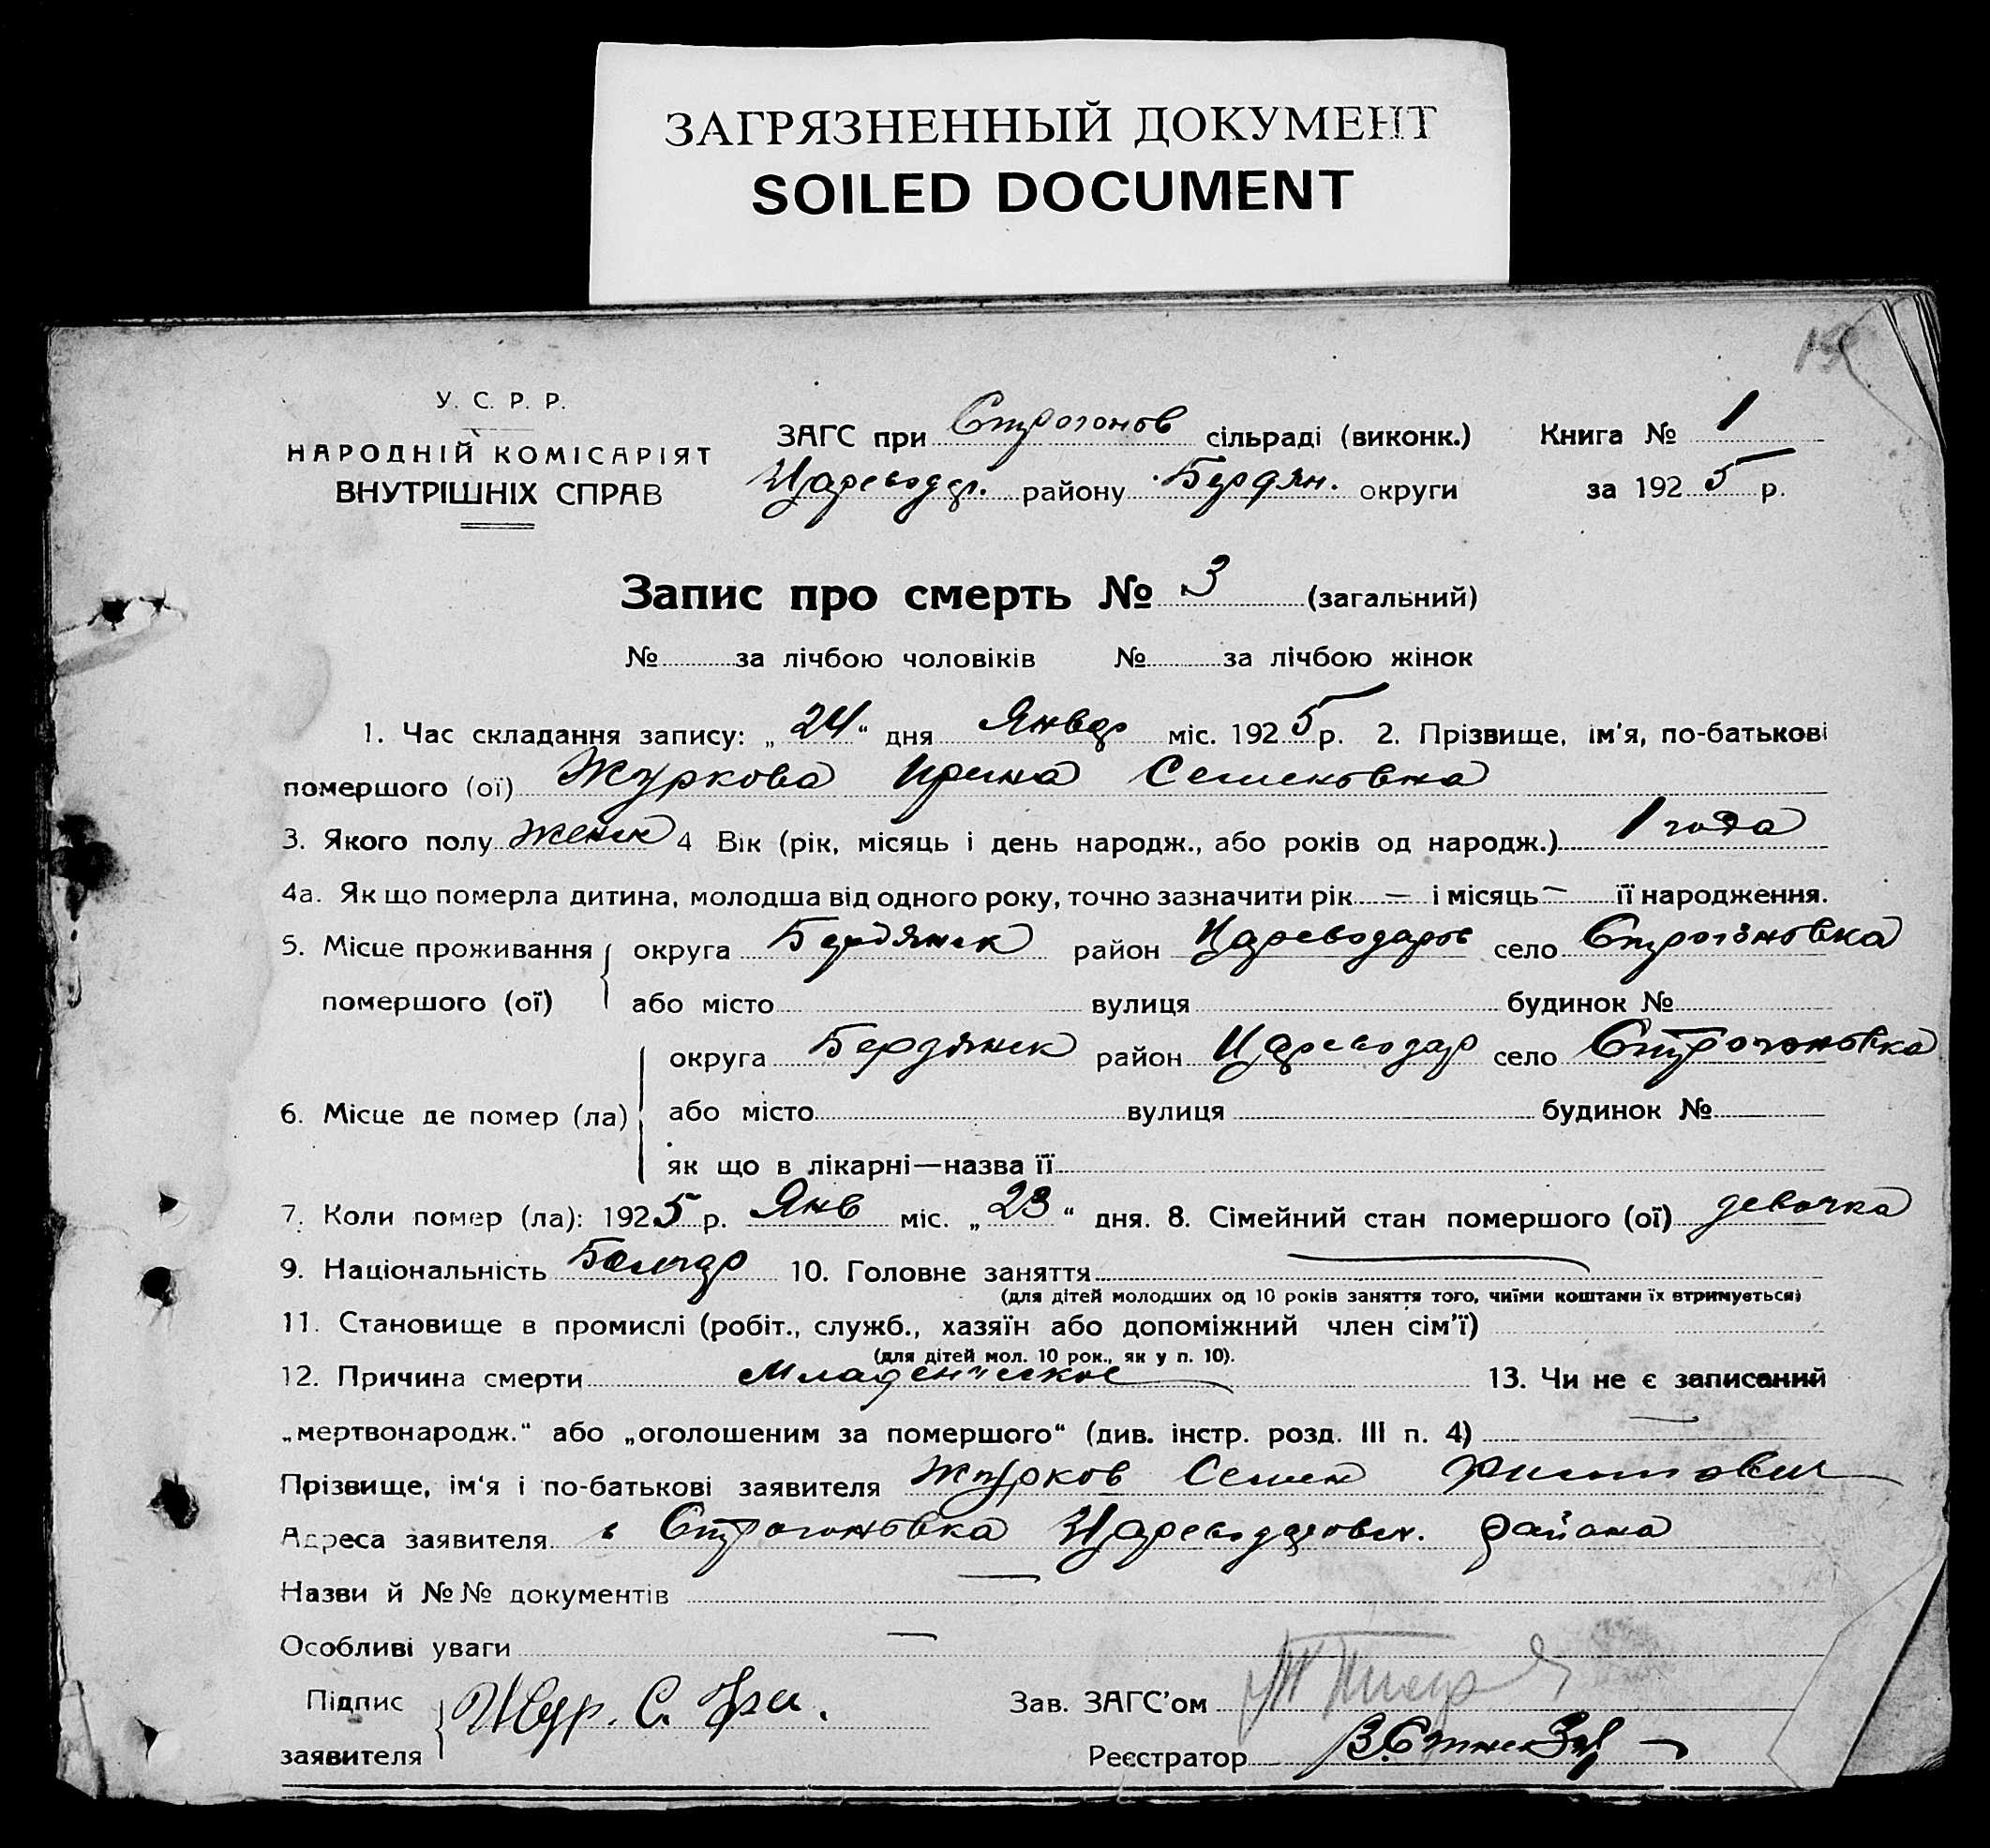 ЗАГРЯЗНЕННЫЙ ДОКУМЕНТ
SOILED DOCUMENT
У. С. Р. Р.
НАРОДНІЙ КОМІСАРІЯТ
ВНУТРІШНІХ СПРАВ
ЗАГС при Строгонов сільраді (виконк.) Книга № 1
Цареводар. району Бердян. округи за 1925 р.
Запис про смерть № 3 (загальний)
№ за лічбою чоловіків № за лічбою жінок
1. Час складання запису: „24“ дня Январ міс. 1925 р. 2. Прізвище, ім'я, по-батькові
помершого (ої) Журкова Ирина Семеновна
3. Якого полу женск 4 Вік (рік, місяць і день народж., або років од народж.) 1 года
4а. Як що померла дитина, молодша від одного року, точно зазначити рік — і місяць — її народження.
5. Місце проживання округа Бердянск район Цареводаров село Строгоновка
помершого (ої) або місто вулиця будинок №
округа Бердянск район Цареводар село Строгоновка
6. Місце де помер (ла) або місто вулиця будинок №
як що в лікарні—назва її
7. Коли помер (ла): 1925 р. Янв міс. „23“ дня. 8. Сімейний стан помершого (ої) девочка
9. Національність Болгар 10. Головне заняття —
(для дітей молодших од 10 років заняття того, чиїми коштами їх втримується)
11. Становище в промислі (робіт., служб., хазяїн або допоміжний член сім'ї)
(для дітей мол. 10 рок., як у п. 10).
12. Причина смерти Младенческое 13. Чи не є записаний
„мертвонародж.“ або „оголошеним за помершого“ (див. інстр. розд. III п. 4) —
Прізвище, ім'я і по-батькові заявителя Журков Семен
Адреса заявителя с Строгоновка Цареводаровск. района
Назви й №№ документів —
Особливі уваги —
Підпис Жур. С.
заявителя
Зав. ЗАГС'ом
Реєстратор